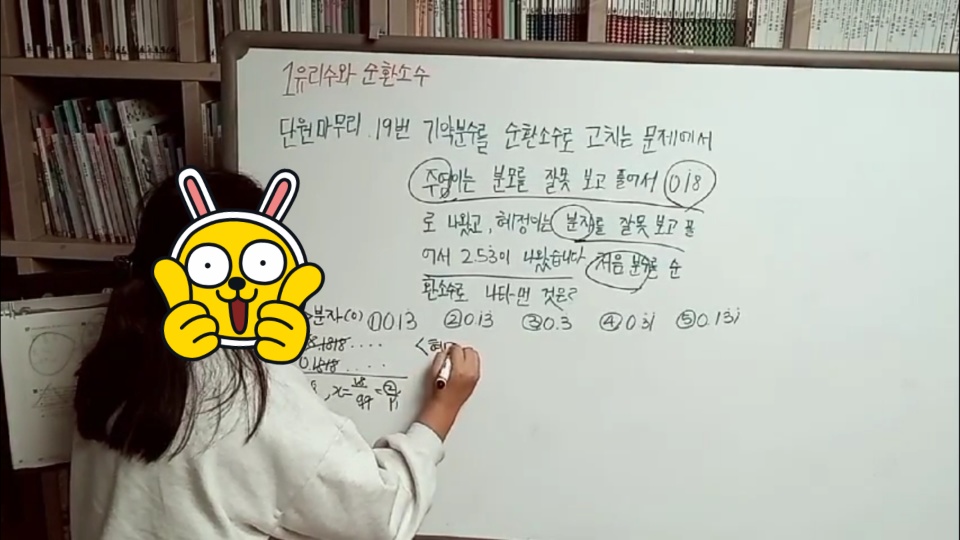 1유리수와 순환소수
단원마무리. 19번 기약분수를 순환소수로 고치는 문제에서
주엽이는 분모를 잘못 보고 풀어서 0.1̇8̇
로 나왔고, 혜정이는 분자를 잘못 보고 풀
어서 2.53̇이 나왔습니다 처음 분수를 순
환소수로 나타낸 것은?
분자(0) ①0.13 ②0.1̇3̇ ③0.3̇ ④0.3̇1̇ ⑤0.1̇31̇
8.1818.... <혜
0.1818....
8, x=18/99=②/11